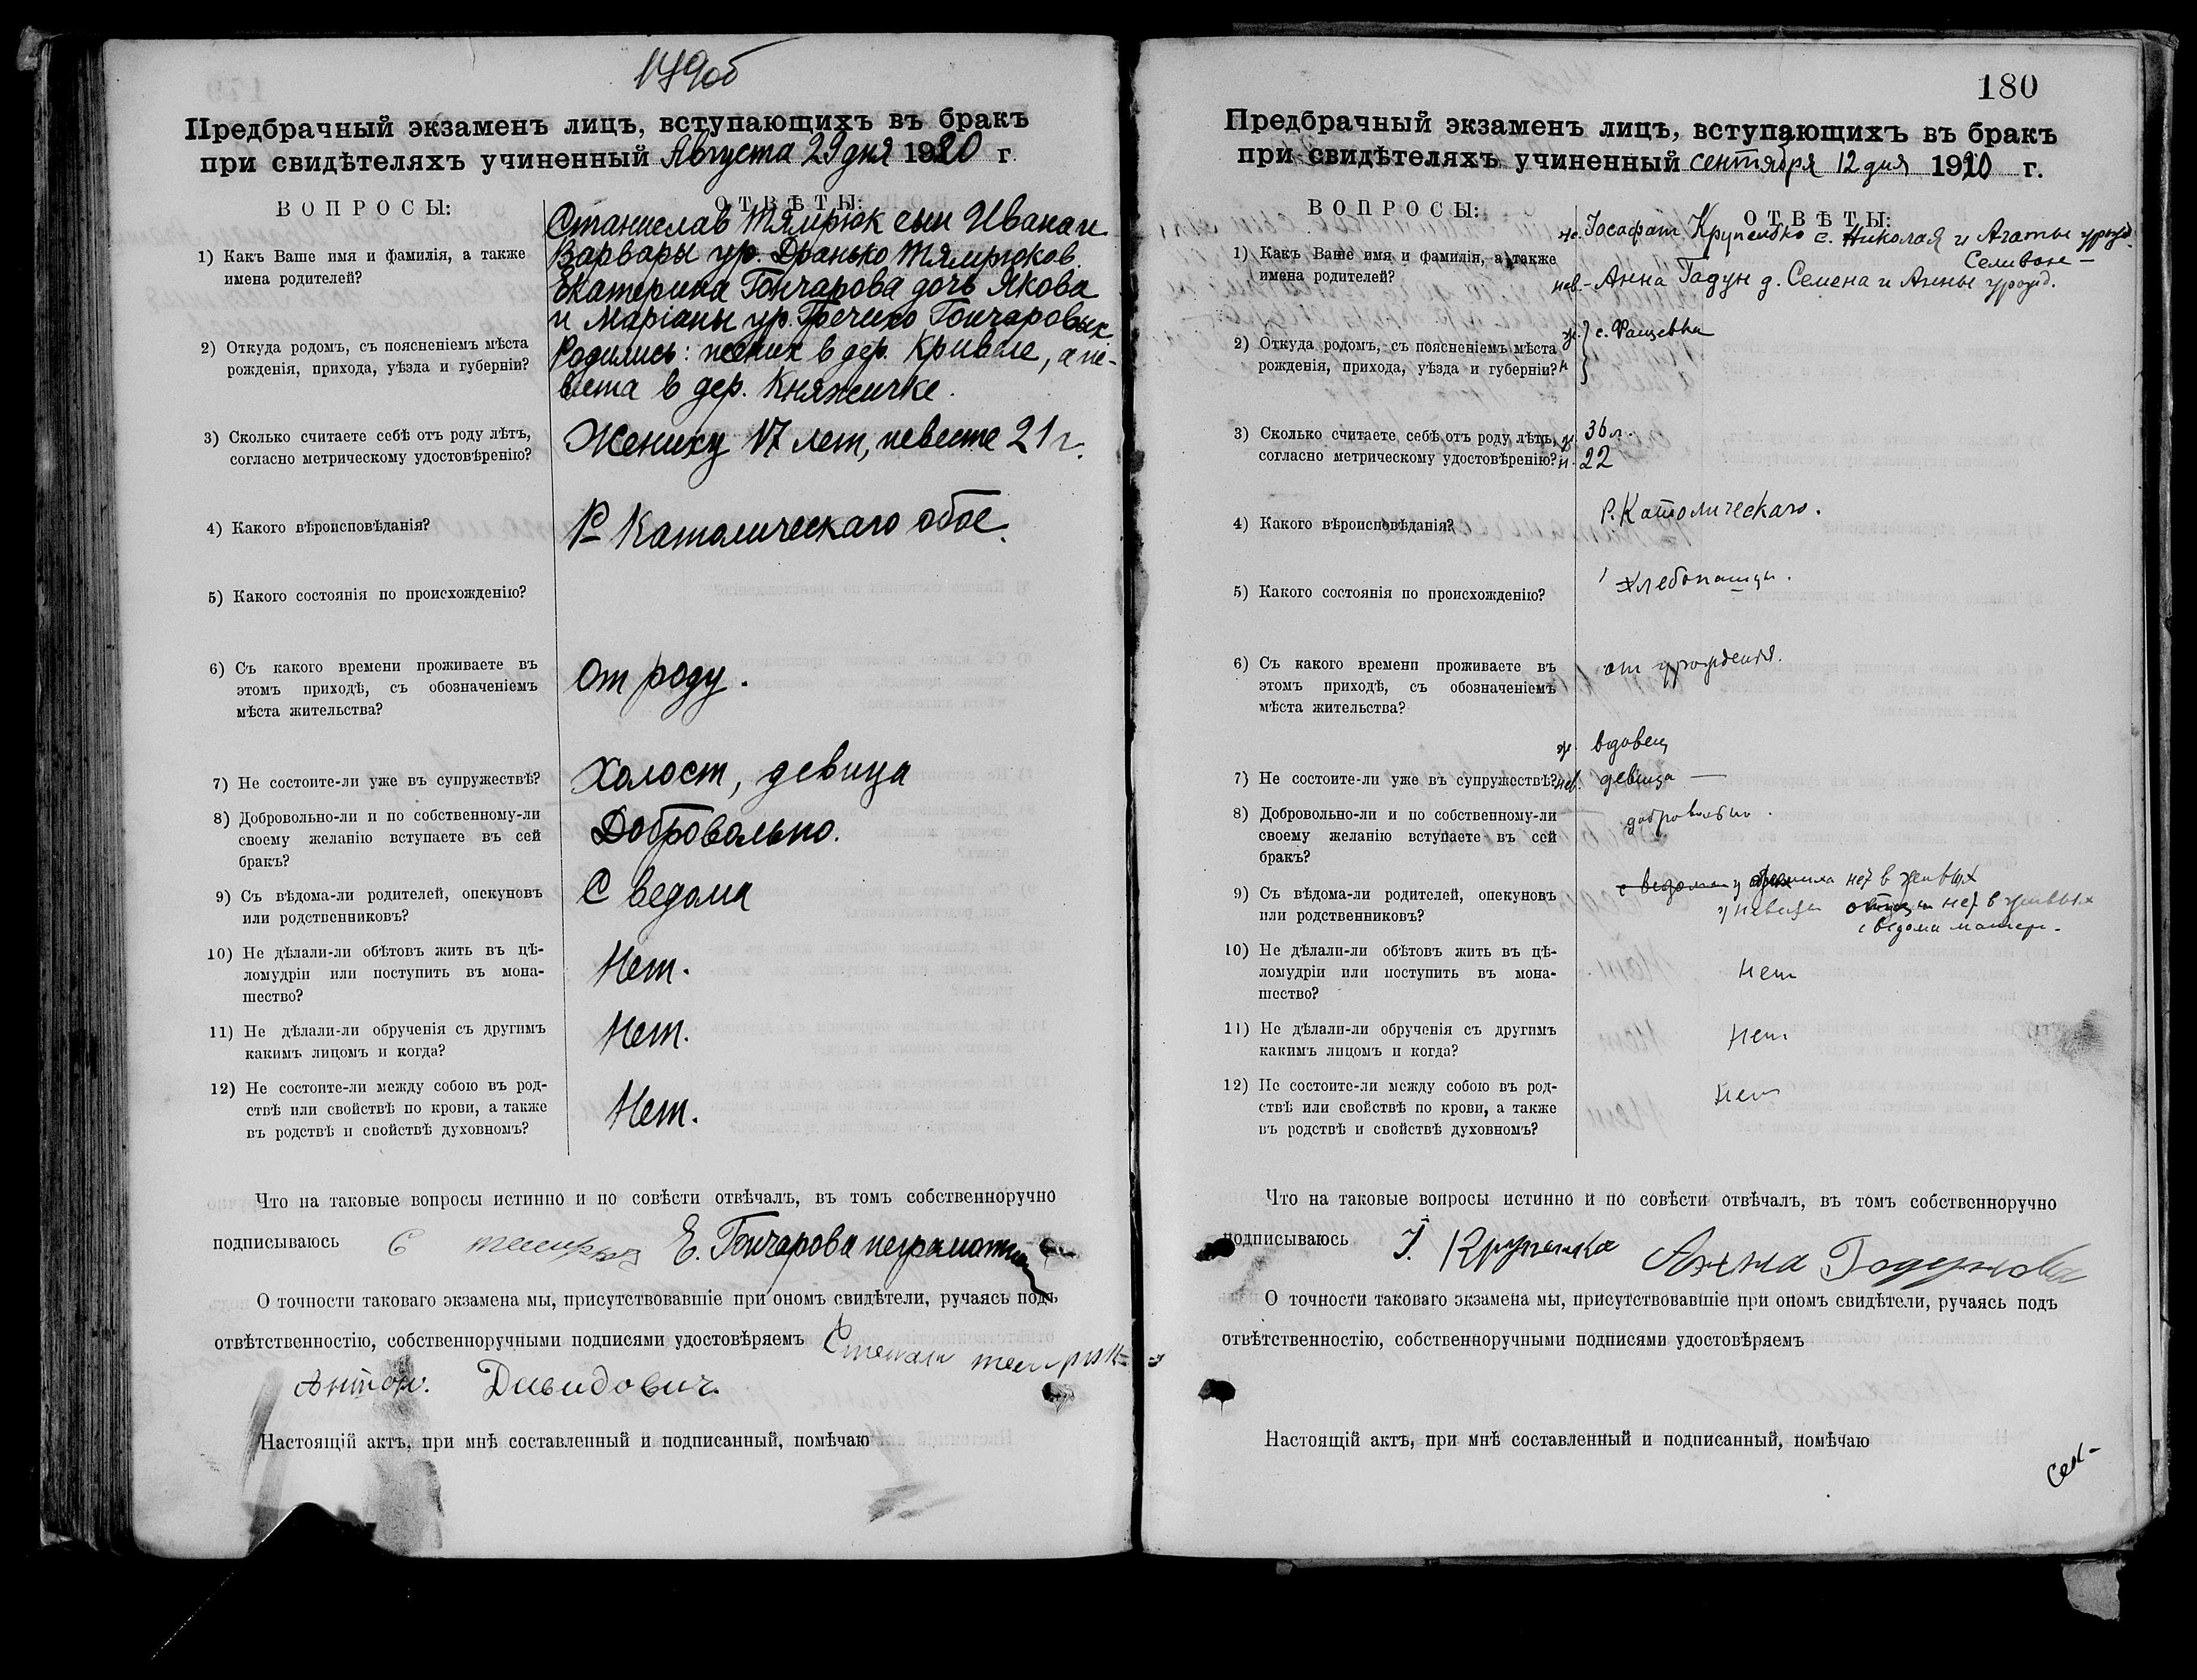 179об
Предбрачный экзаменъ лицъ, вступающихъ въ бракъ
при свидѣтеляхъ учиненный Августа 29 дня 1920 г
ВОПРОСЫ:
ОТВѢТЫ:
1) Какъ Ваше имя и фамилія, а также
имена родителей?
Станислав Тямрюк сын Ивана и
Варвары ур. Дранько Тямрюков.
Екатерина Гончарова дочь Якова
и Маріаны ур. Гречихо Гончаровых
2) Откуда родомъ, съ поясненіемъ мѣста
рожденія, прихода, уѣзда и губерніи?
Родились: жених в дер. Кривле, а не-
веста в дер. Княжичке.
3) Сколько считаете себѣ отъ роду лѣтъ,
согласно метрическому удостовѣренію?
Жениху 17 лет, невесте 21 г.
4) Какого вѣроисповѣданія?
Р Католическаго обое.
5) Какого состоянія по происхожденію?
6) Съ какого времени проживаете въ
этомъ приходѣ, съ обозначеніемъ
мѣста жительства?
От роду.
7) Не состоите-ли уже въ супружествѣ?
Холост, девица
8) Добровольно-ли и по собственному-ли
своему желанію вступаете въ сей
бракъ?
Добровольно.
9) Съ вѣдома-ли родителей, опекуновъ
или родственниковъ?
С ведома
10) Не дѣлали-ли обѣтовъ жить въ цѣ-
ломудріи или поступить въ мона-
шество?
Нет.
11) Не дѣлали-ли обрученія съ другимъ
какимъ лицомъ и когда?
Нет.
12) Не состоите-ли между собою въ род-
ствѣ или свойствѣ по крови, а также
въ родствѣ и свойствѣ духовномъ?
Нет.
Что на таковые вопросы истинно и по совѣсти отвѣчалъ, въ томъ собственноручно
подписываюсь С Е. Гончарова неграмотна
О точности таковаго экзамена мы, присутствовавшіе при ономъ свидѣтели, ручаясь подъ
отвѣтственностію, собственноручными подписями удостовѣряемъ
Антон. Давидович.
Настоящій актъ, при мнѣ составленный и подписанный, помѣчаю
180
Предбрачный экзаменъ лицъ, вступающихъ въ бракъ
при свидѣтеляхъ учиненный сентября 12 дня 1920 г.
ВОПРОСЫ:
ОТВѢТЫ:
1) Какъ Ваше имя и фамилія, а также
имена родителей?
ж. Іосафат Крупенько с. Николая и Агаты урожд.
Селивон
нев. - Анна Гадун д. Семена и Анны урожд.
2) Откуда родомъ, съ поясненіемъ мѣста
рожденія, прихода, уѣзда и губерніи?
ж. } с. Фащевка
н }
3) Сколько считаете себѣ отъ роду лѣтъ,
согласно метрическому удостовѣренію?
ж. 36 л.
н. 22
4) Какого вѣроисповѣданія?
Р. Католическаго.
5) Какого состоянія по происхожденію?
Хлебопашцы.
6) Съ какого времени проживаете въ
этомъ приходѣ, съ обозначеніемъ
мѣста жительства?
от урождения.
7) Не состоите-ли уже въ супружествѣ?
ж. вдовец
нев. девица —
8) Добровольно-ли и по собственному-ли
своему желанію вступаете въ сей
бракъ?
добровольно.
9) Съ вѣдома-ли родителей, опекуновъ
или родственниковъ?
с ведома у жениха нет в живых
у невесты отца нет в живых
с ведома матери.
10) Не дѣлали-ли обѣтовъ жить въ цѣ-
ломудріи или поступить въ мона-
шество?
Нет
11) Не дѣлали-ли обрученія съ другимъ
какимъ лицомъ и когда?
Нет
12) Не состоите-ли между собою въ род-
ствѣ или свойствѣ по крови, а также
въ родствѣ и свойствѣ духовномъ?
Нет
Что на таковые вопросы истинно и по совѣсти отвѣчалъ, въ томъ собственноручно
подписываюсь І. Анна Годунова
О точности таковаго экзамена мы, присутствовавшіе при ономъ свидѣтели, ручаясь подъ
отвѣтственностію, собственноручными подписями удостовѣряемъ
Настоящій актъ, при мнѣ составленный и подписанный, помѣчаю